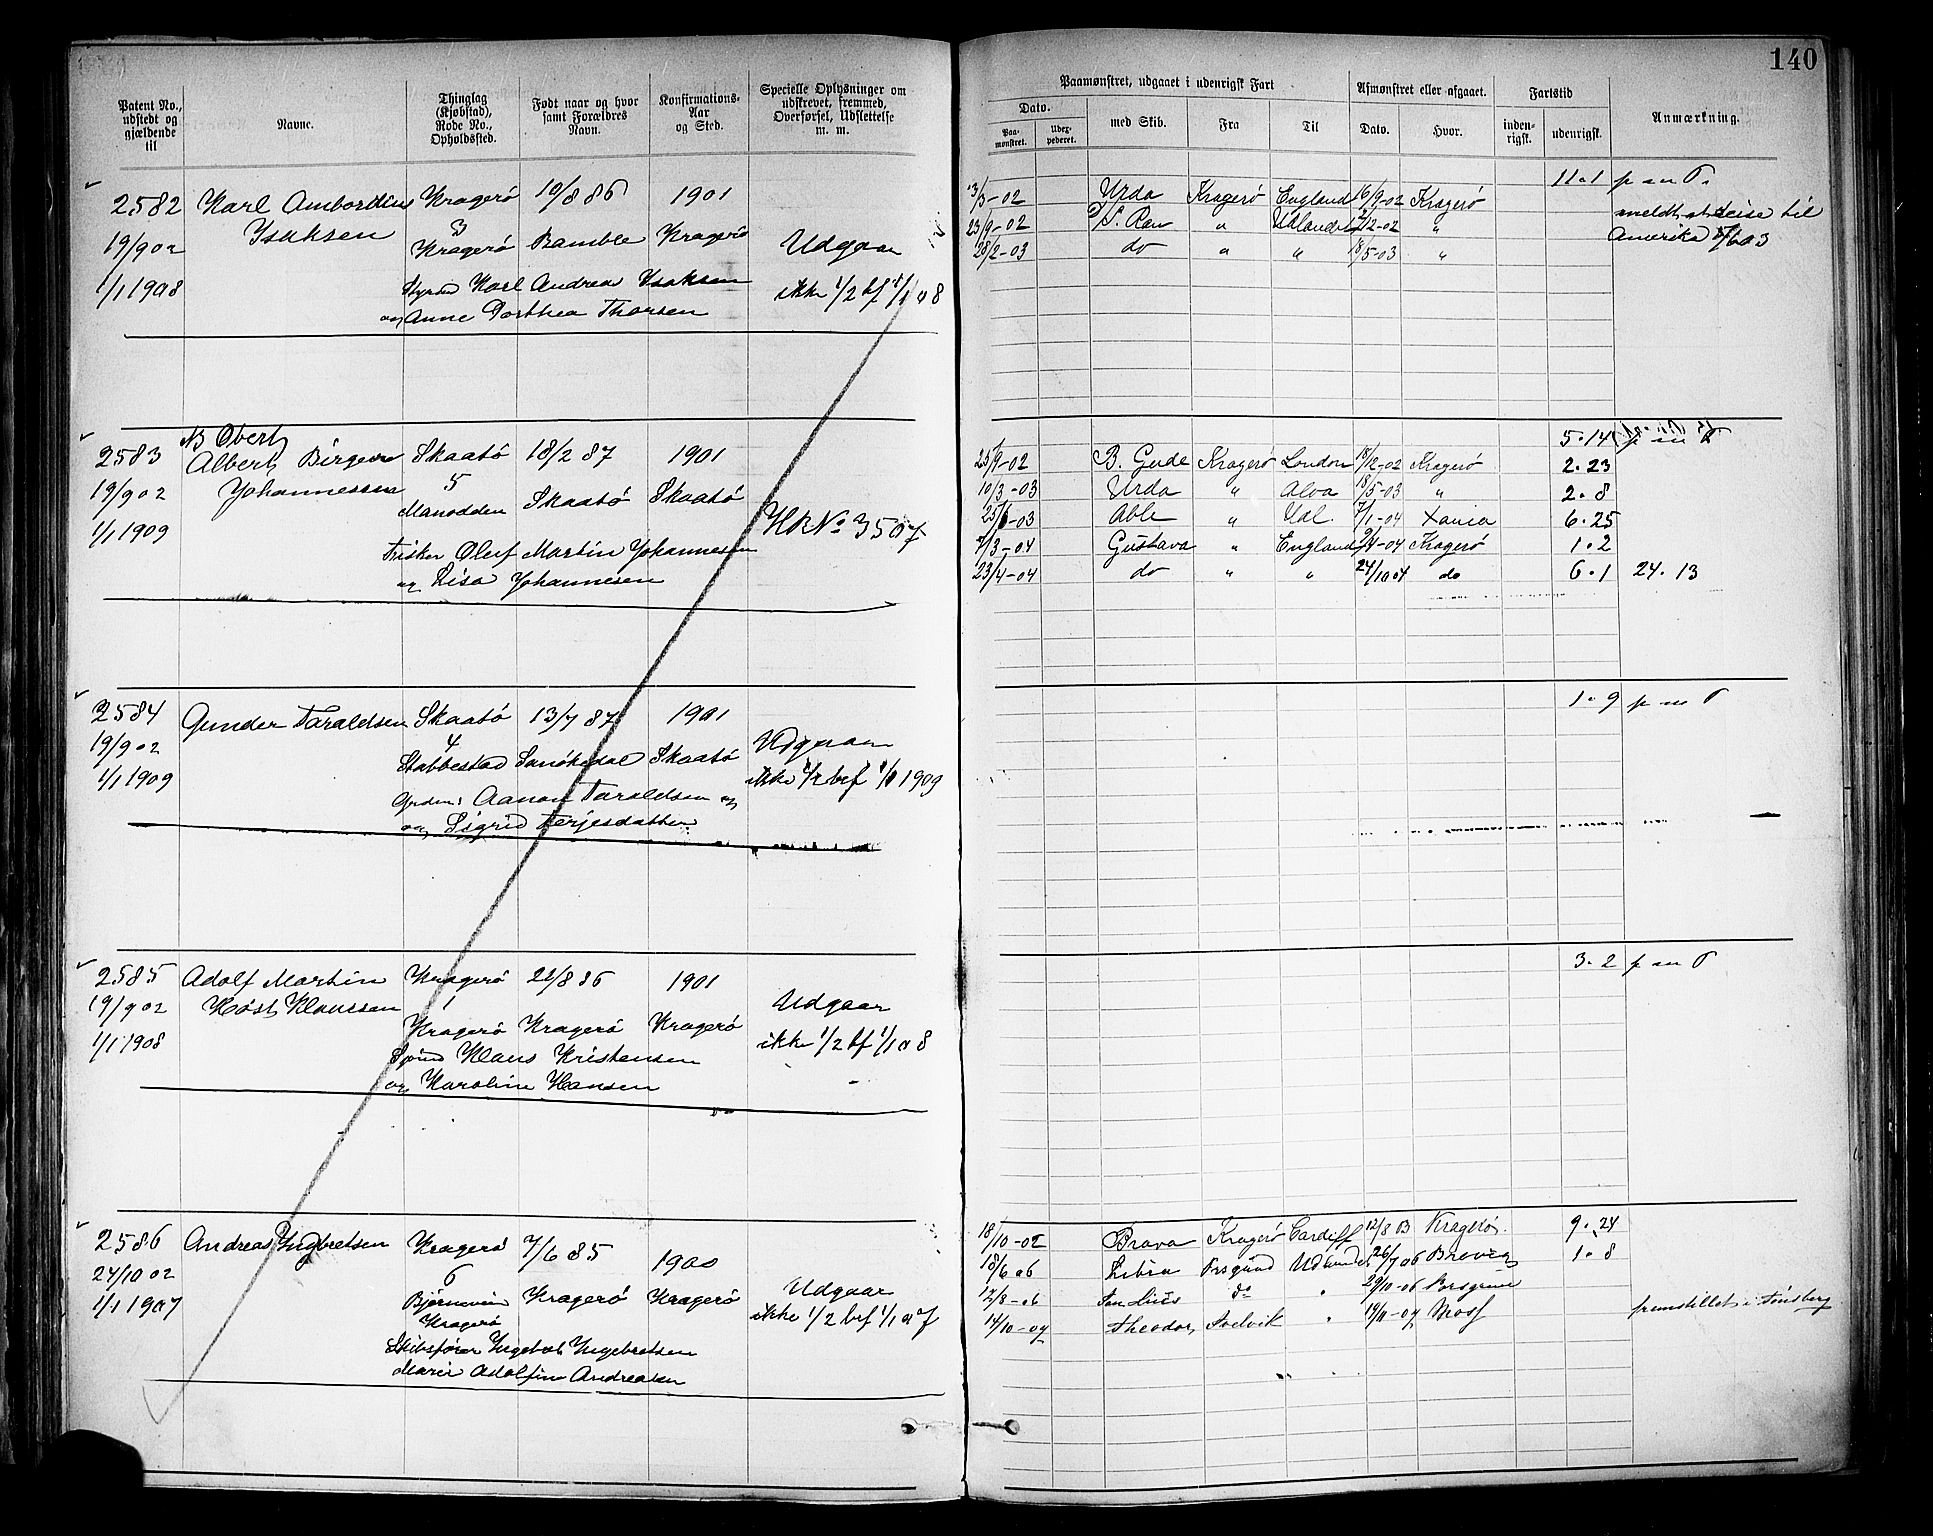 140
Patent No., udstedt og gjældende til
Navne.
Thinglag (Kjøbstad), Rode No., Opholdssted.
Født naar og hvor samt Forældres Navn.
Konfirmations-Aar og Sted.
Specielle Oplysninger om udskrevet, fremmed, Overførsel, Udslettelse m. m.
Paamønstret, udgaaet i udenrigsk Fart
Afmønstret eller afgaaet.
Fartstid
Anmærkning.
Dato.
Paa-mønstret.
med Skib.
Fra
Til
Dato.
Hvor.
inden-rigsk.
udenrigsk.
2582 Karl Ambordius Kragerö 19/8 86 1901
Isaksen 3
19/9 02 Kragerö Bamble Kragerö Udgaar
1/1 1908 Karl Andreas Isaksen ikke 1/2 bf 1/1 08
og Anne Dorthea Thorsen
11.1 p an P.
13/3-02 Urda Kragerö England 16/9-02 Kragerö
23/9-02 S. Ran " Udlandet /12-02 "
28/2-03 do " " 18/5-03 "
meldt at reise til
Amerika /6 03
NB Obert
2583 Albert Birger Skaatö 18/2 87 1901
19/9 02 Johannessen 5 Skaatö Skaatö
1/1 1909 Manodden
HR No 3507
Fisker Oluf Martin Johannesen
og Lisa Johannesen
5.14 p an P
25/9-02 B. Gude Kragerö London 18/12-02 Kragerö 2.23
10/3-03 Urda " Alva 18/5-03 " 2.8
25/6-03 Able " Udl. 7/1-04 Xania 6.25
/3-04 Gustava " England /4-04 Kragerö 1.2
23/4-04 do " " 24/10 04 do 6.1 24.13
2584 Gunder Taraldsen Skaatö 13/7 87 1901
19/9 02 4
Stabbestad Sanökedal Skaatö Udgaar
1/1 1909 ikke 1/2 bef 1/1 1909
Aanon Taraldsen og
og Sigrid Terjesdatter
1.9 p an P
2585 Adolf Martin Kragerö 22/8 86 1901
19/9 02 Höst Klausen 1 Udgaar
1/1 1908 Kragerö Kragerö Kragerö ikke 1/2 bf 1/1 08
Klaus Kristensen
og Karoline Hansen
3.2 p an P
2586 Andreas Ingbretsen Kragerö 7/6 85 1900
24/10 02 6
1/1 1907 Björnsvein Kragerö Kragerö Udgaar
Kragerö ikke 1/2 bef 1/1 07
Skibsförer Ingebret Ingebretsen
Marie Adolfine Andreasen
18/10-02 Brava Kragerö Cardiff 12/8 03 Kragerö. 9.24
18/6 06 Libra Porsgrund Udlandet 26/7 06 Brevig 1.8
12/8-06 do " 29/10-06 Porsgrund
14/10-07 Theodor Svelvik " 19/11-07 Moss
fremstillet i Tönsberg